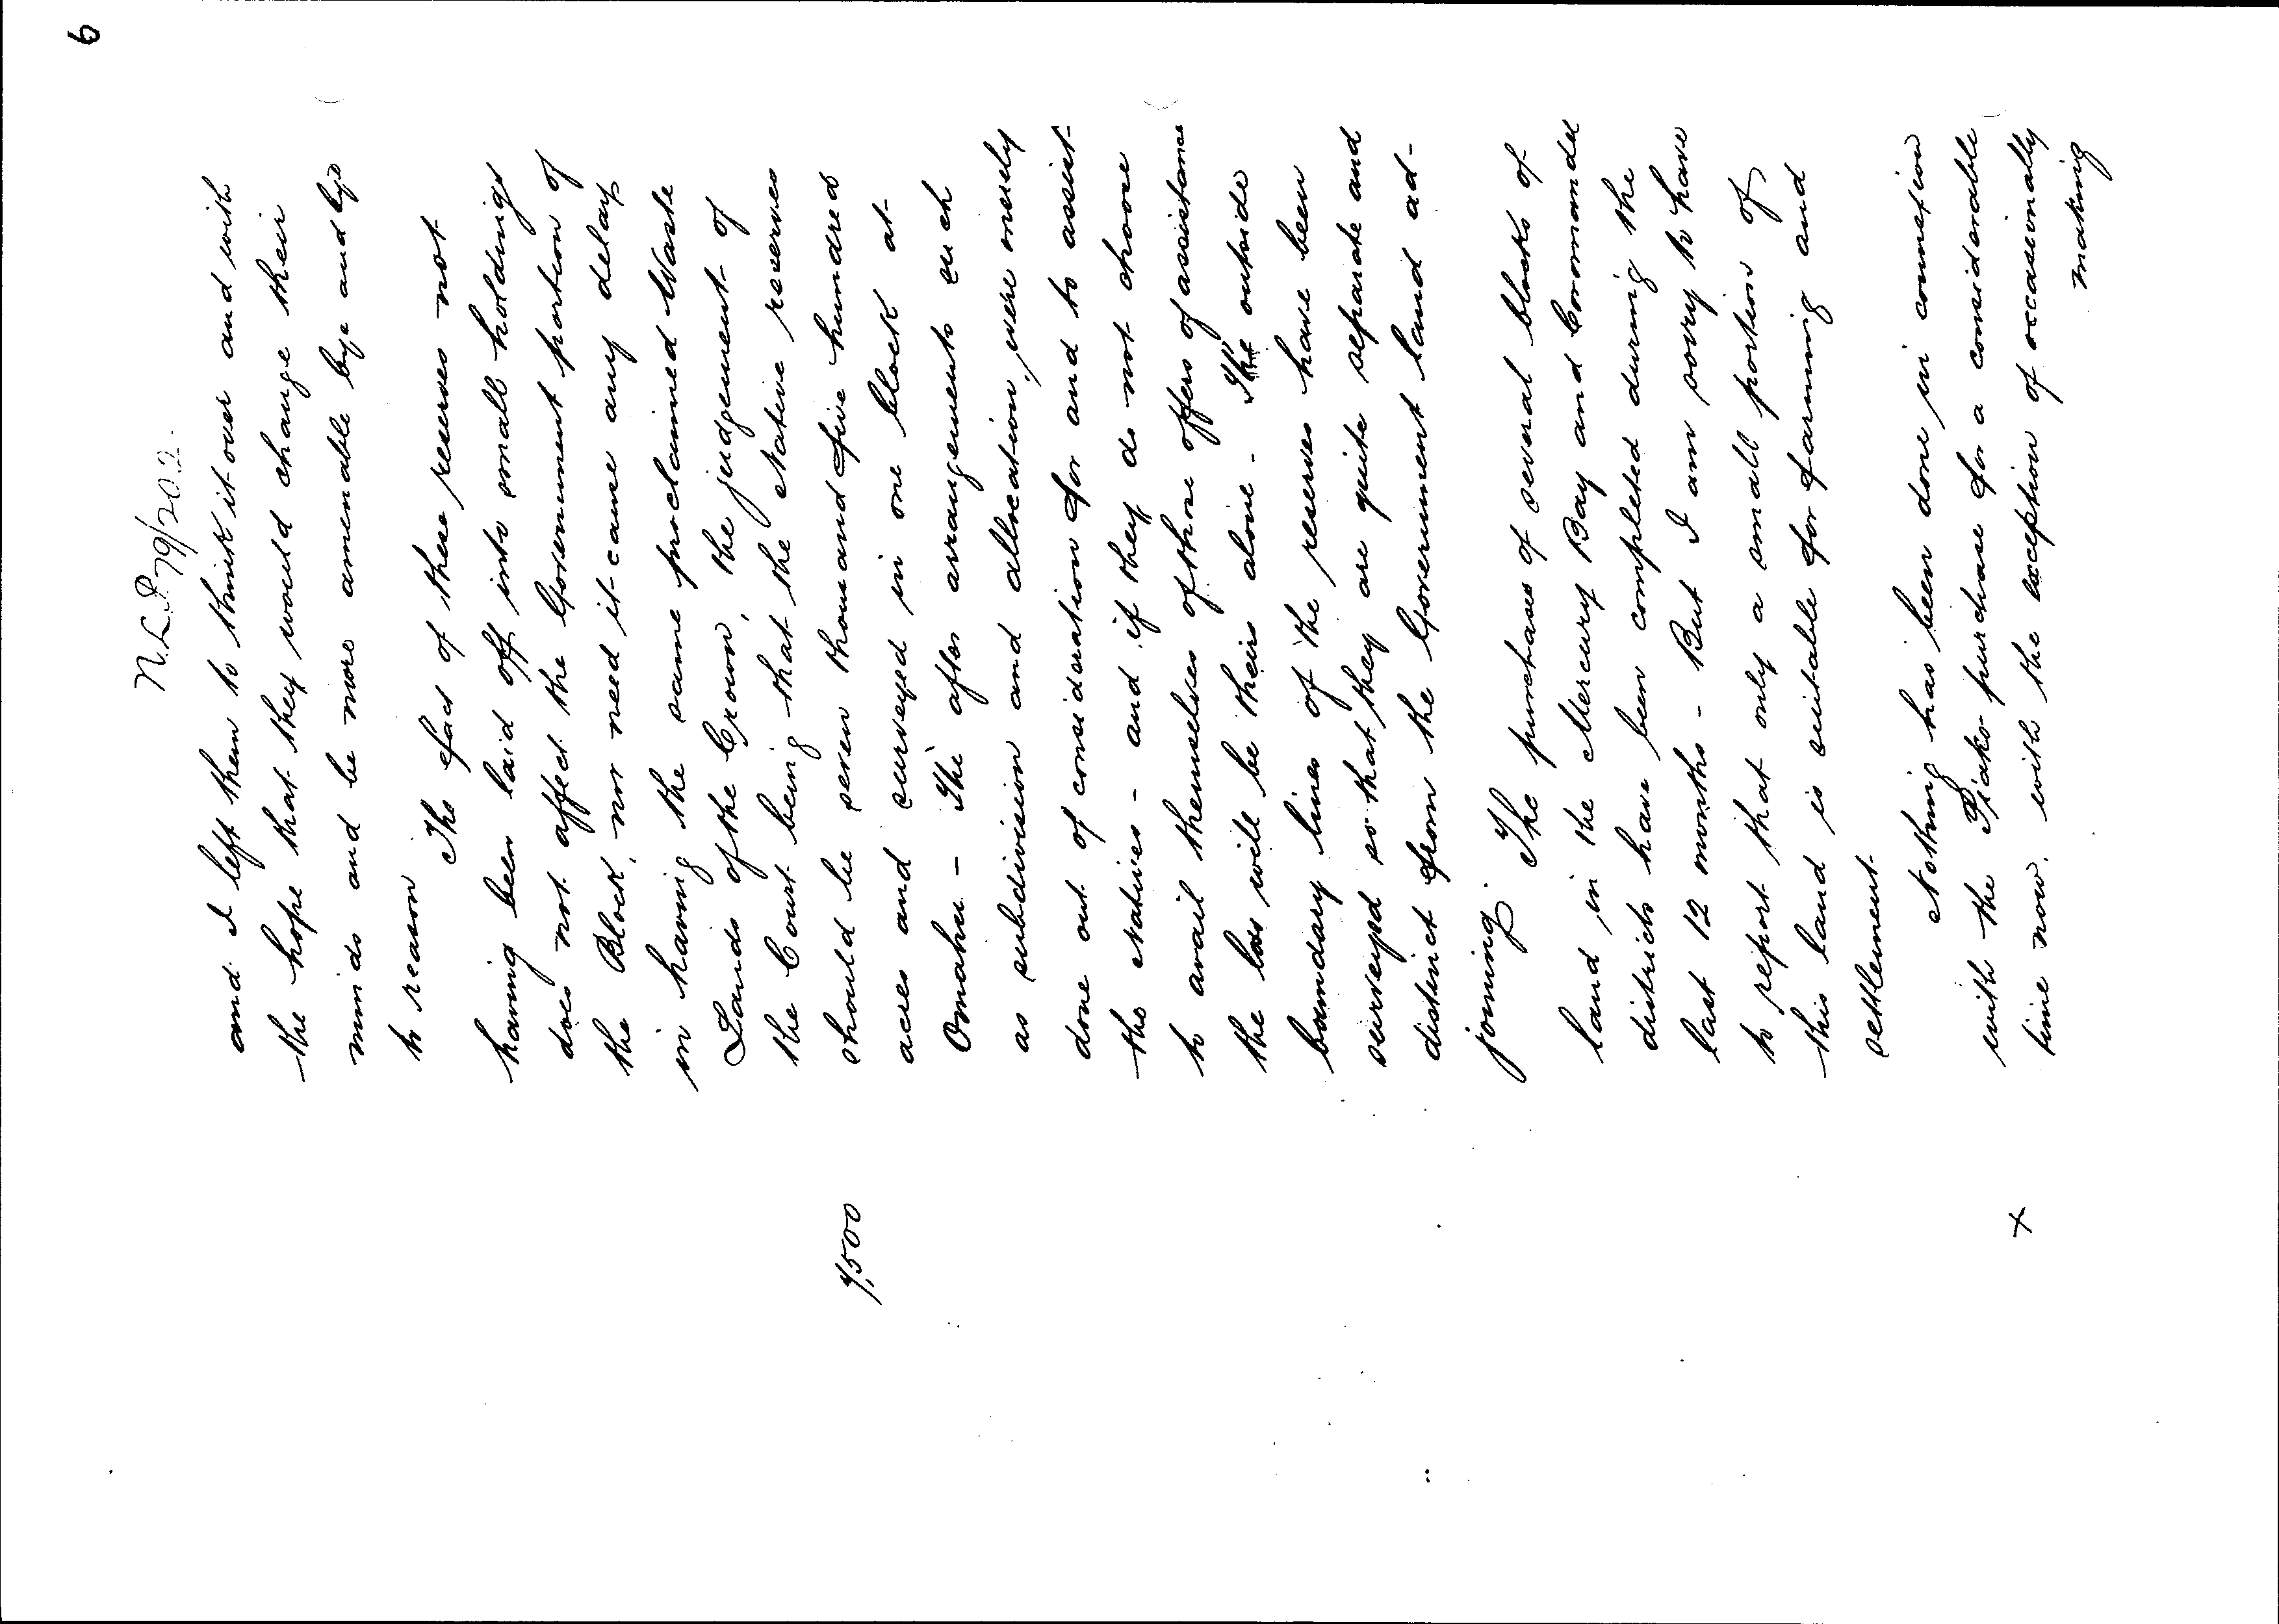 6
N.L.P. 79/202.
and I left them to think it over and with
the hope that they would change their
minds and be more amenable bye and bye
to reason
The fact of these reserves not
having been laid off into small holdings
does not affect the Government portion of
the Block, nor need it cause any delay
in having the same proclaimed Waste
Lands of the Crown, the judgement of
the Court being that the Native reserves
should be seven thousand five hundred
7,500
acres and surveyed in one block at
Omahu - The after arrangements such
as subdivision and allocation, were merely
done out of consideration for and to assist
the Natives - and if they do not choose
to avail themselves of those offers of assistance
the loss will be theirs alone - The outside
boundary lines of the reserves have been
surveyed so that they are quite separate and
distinct from the Government land ad-
joining.
The purchases of several blocks of
land in the Mercury Bay and Coromandel
districts have been completed during the
last 12 months - But I am sorry to have
to report that only a small portion of
this land is suitable for farming and
settlement.
Nothing has been done in connection
with the Piako purchase for a considerable
x
time now, with the exception of occasionally
making